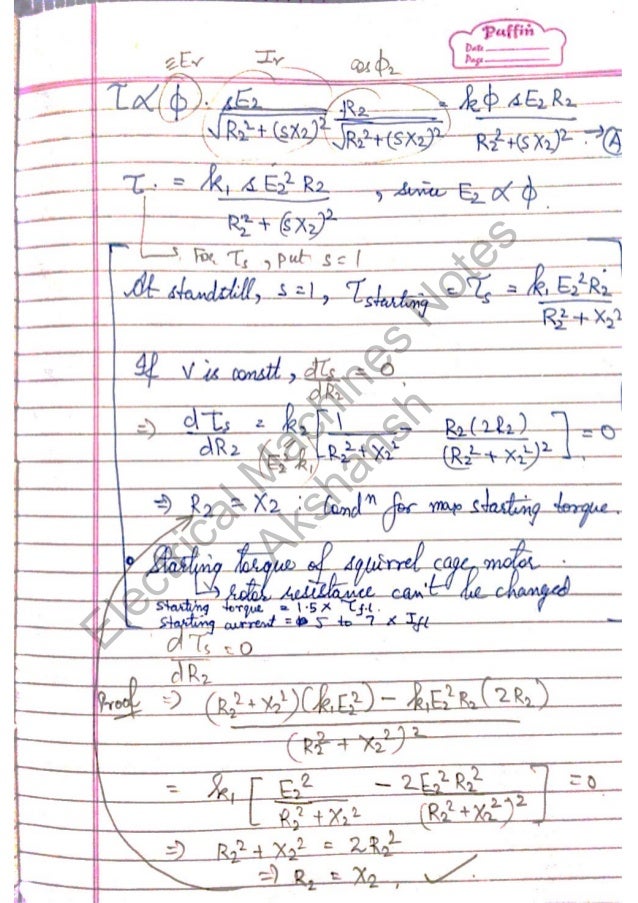 Puffin
Date
Page
≡Er Ir cos ϕ2
τ ∝ ϕ . sE2/√(R2² + (sX2)²) R2/√(R2² + (sX2)²) = kϕ sE2 R2/(R2² + (sX2)²) → A
τ = k1 s E2² R2/(R2² + (sX2)²) , since E2 ∝ ϕ
For τs, put s = 1
At standstill, s=1, τstarting = τs = k1 E2² R2/(R2² + X2²)
If V is constt, dτs/dR2 = 0
⇒ dτs/dR2 = k2 [1/(R2² + X2²) - R2(2R2)/(R2² + X2²)²] = 0
(E2² k1)
⇒ R2 = X2 : Condⁿ for max starting torque.
• Starting torque of squirrel cage motor.
↳ rotor resistance can't be changed
starting torque = 1.5 × τf.l.
starting current = 5 to 7 × Ifl
dτs/dR2 = 0
Proof ⇒ ((R2² + X2²)(k1E2²) - k1E2²R2(2R2))/(R2² + X2²)²
= k1 [E2²/(R2² + X2²) - 2E2²R2²/(R2² + X2²)²] = 0
⇒ R2² + X2² = 2R2²
⇒ R2 = X2,
Electrical Machines Notes
Akshansh